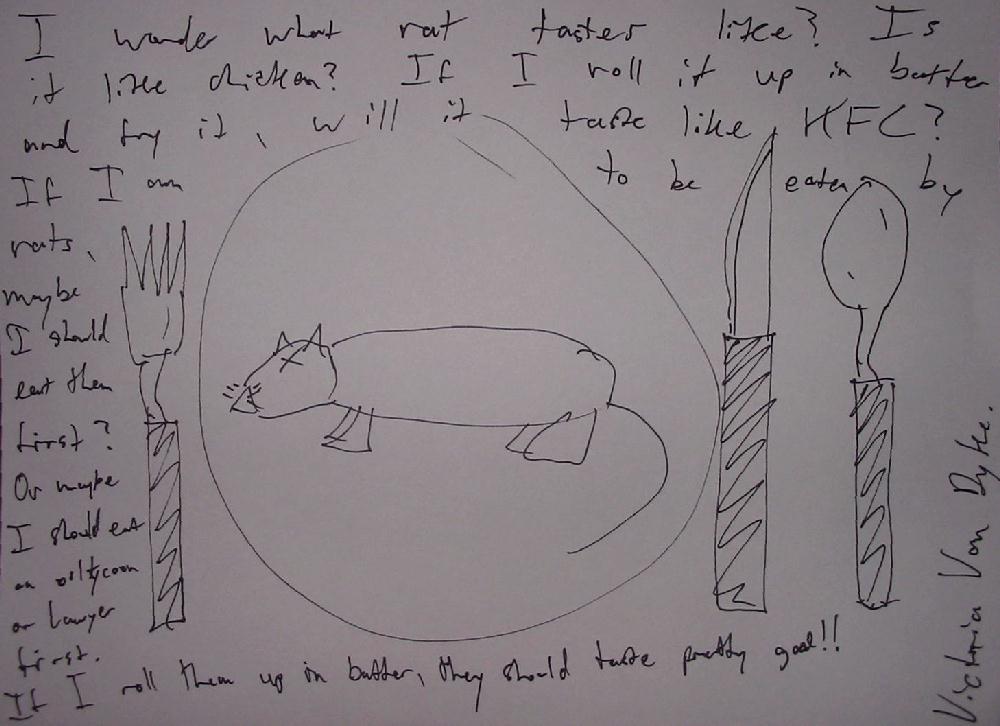 I wonder what rat tastes like? Is
it like chicken? If I roll it up in batter
and fry it, will it taste like KFC?
If I am to be eaten by
rats,
maybe
I should
eat them
first?
Or maybe
I should eat
an oil tycoon
or lawyer
first.
If I roll them up in batter, they should taste pretty good!!
Victoria Van Dyke.